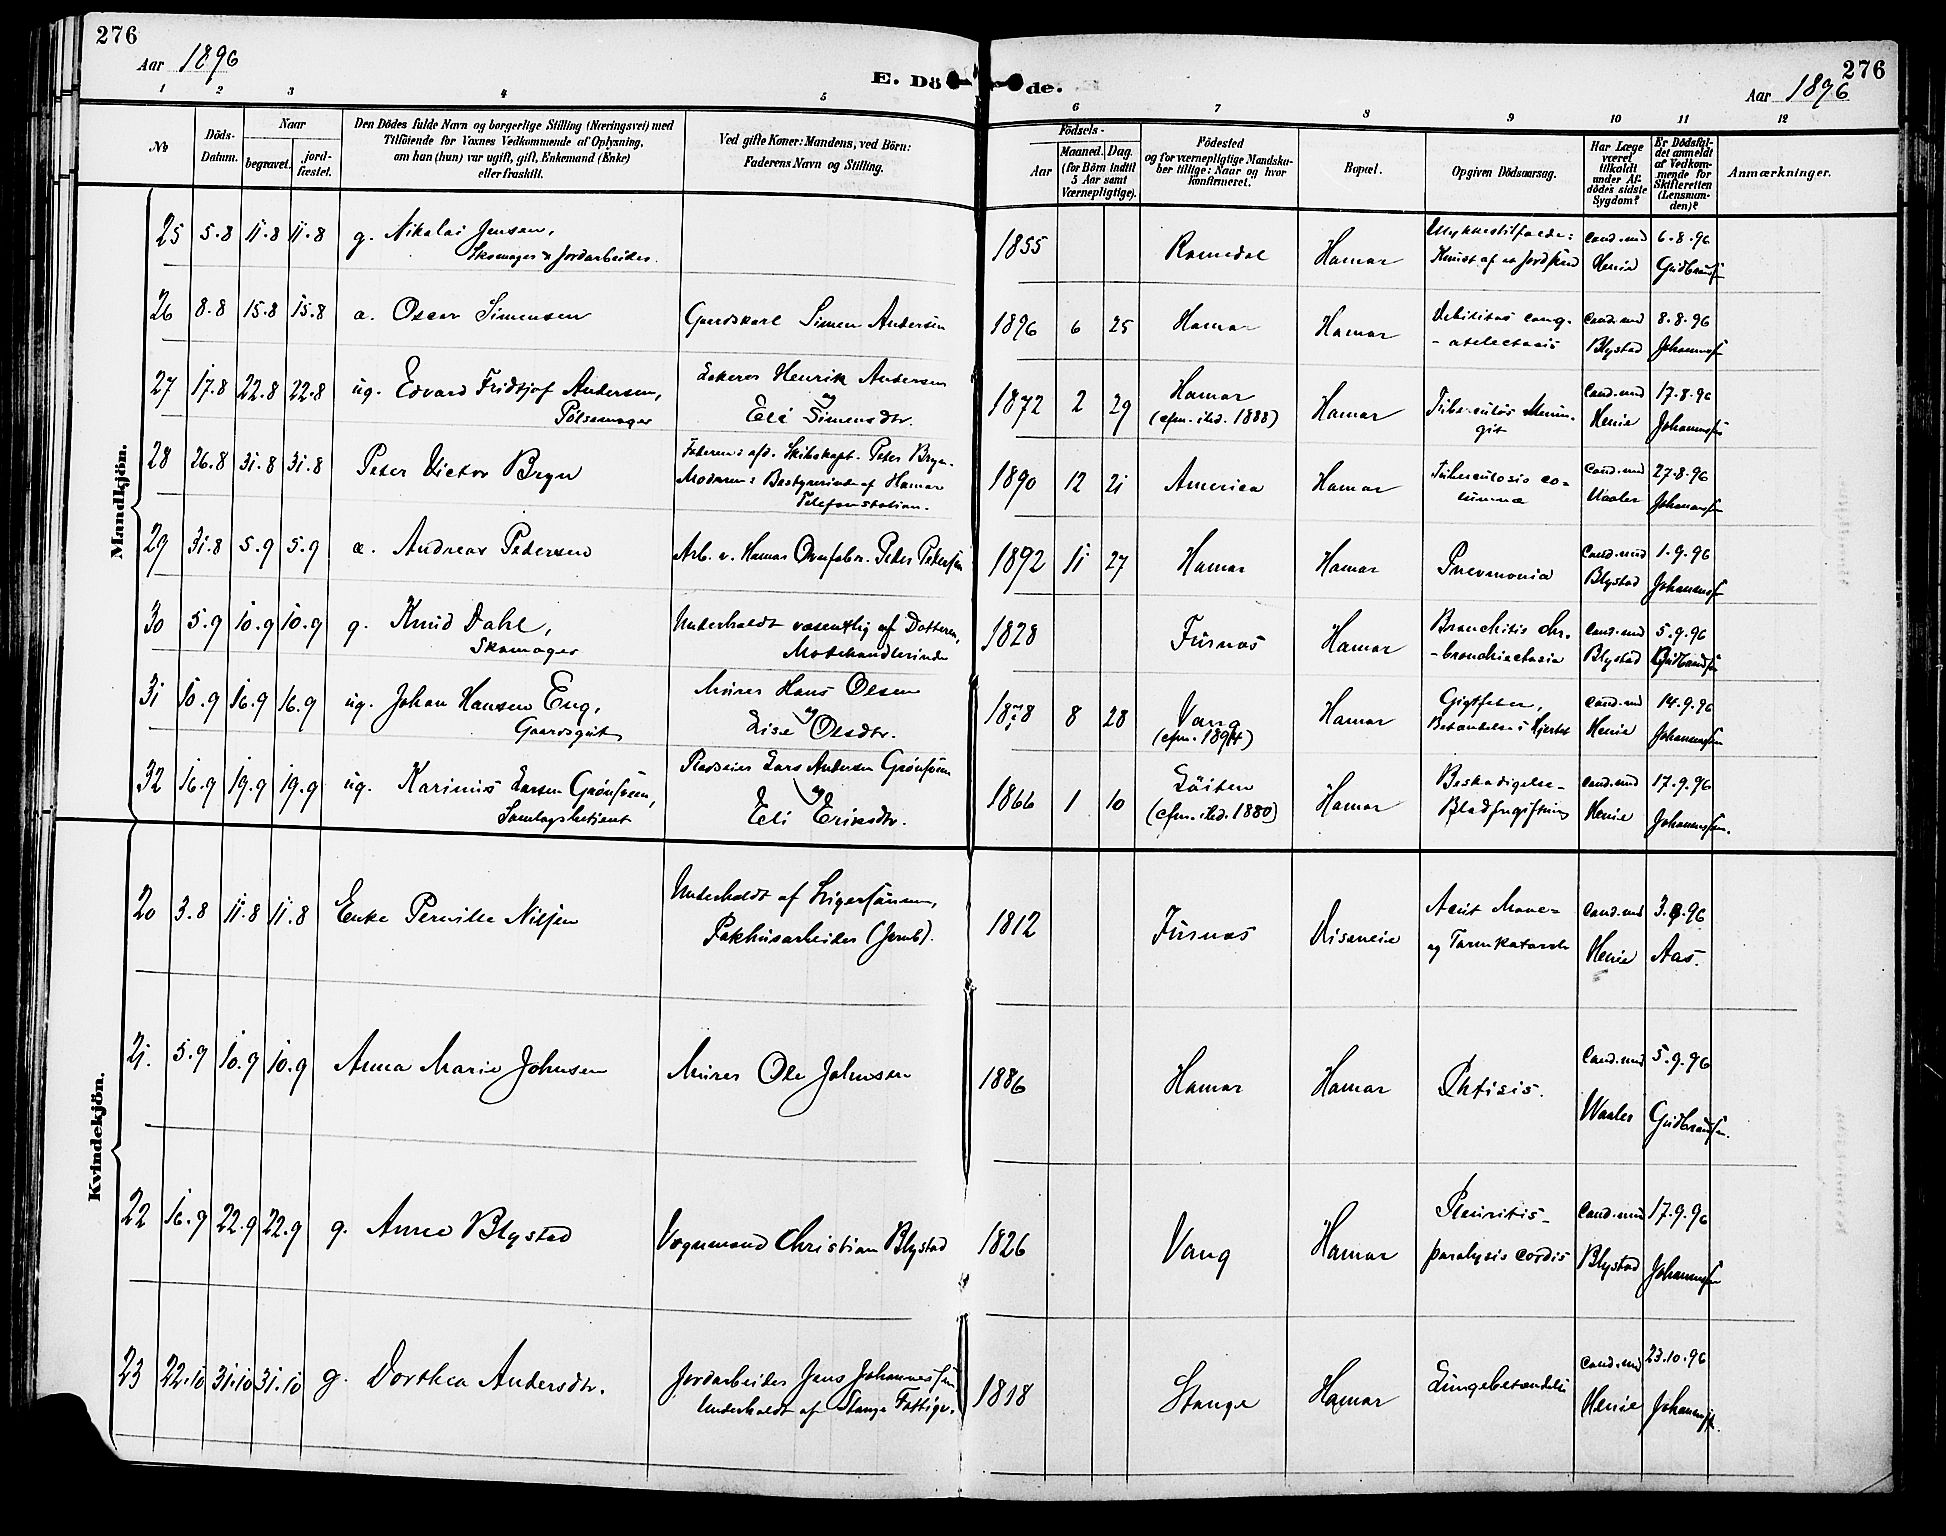 276
Aar 1896
E. Dö de.
276
Aar 1896
1 2 3 4 5 6 7 8 9 10 11 12
No
Döds-
Datum.
Naar
begravet.
jord-
fæstet.
Den Dödes fulde Navn og borgerlige Stilling (Næringsvei) med
Tilföiende for Voxnes Vedkommende af Oplysning,
om han (hun) var ugift, gift, Enkemand (Enke)
eller fraskilt.
Ved gifte Koner: Mandens, ved Börn:
Faderens Navn og Stilling.
Födsels-
Aar
Maaned. Dag.
(for Börn indtil
5 Aar samt
Værnepligtige).
Födested
og for værnepligtige Mandska-
ber tillige: Naar og hvor
konfirmeret.
Bopæl.
Opgiven Dödsaarsag.
Har Læge
været
tilkaldt
under Af-
dödes sidste
Sygdom?
Er Dödsfal-
det anmeldt
af Vedkom-
mende for
Skifteretten
(Lensman-
den)?
Anmærkninger.
Mandkjön.
25 5.8 11.8 11.8 g. Nikolai Jensen,
Skomager & Jordarbeider.
1855 Romedal Hamar
Ulykkestilfælde:
Knust af en Jordskred
Cand.med
Henie
6.8.96
Gudbrandsen
26 8.8 15.8 15.8 a. Oscar Simensen
Gaardskarl Simen Andersen
1896 6 25 Hamar Hamar
Debilitas cong.
- atelectasis
Cand.med
Blystad
8.8.96
Johannesen
27 17.8 22.8 22.8 ug. Edvard Fridtjof Andersen,
Pölsemager
Henrik Andersen
og
Eli Simensdtr.
1872 2 29 Hamar
(cfm. ibd. 1888)
Hamar
Tuberculös Menin-
git
Cand.med
Henie
17.8.96
Johannesen
28 26.8 31.8 31.8 Peter Victor Bryn
Faderen: afd. Skibskapt. Peter Bryn.
Moderen: Bestyrerinde af Hamar
Telefonstation.
1890 12 21 America Hamar
Tuberculosis co-
lumnæ
Cand.med
Waaler
27.8.96
Johannesen
29 31.8 5.9 5.9 æ. Andreas Pedersen
Arb. v. Hamar Ovnfabr. Peter Petersen
1892 11 27 Hamar Hamar Pneumonia
Cand.med
Blystad
1.9.96
Johannesen
30 5.9 10.9 10.9 g. Knud Dahl,
Skomager
Underholdt væsentlig af Datteren,
Modehandlerinde
1828 Furnæs Hamar
Bronchitis chr.
- bronchiectasia
Cand.med
Blystad
5.9.96
Gudbrandsen
31 10.9 16.9 16.9 ug. Johan Hansen Eng,
Gaardsgut
Murer Hans Olsen
og
Lise Olsdtr.
1878 8 28 Vang
(cfm. 1894)
Hamar
Gigtfeber,
Betændelse i Hjertet
Cand.med
Henie
14.9.96
Johannesen
32 16.9 19.9 19.9 ug. Karinus Larsen Grönsveen,
Samlagsbetjent
Pladseier Lars Andersen Grönsveen
og
Eli Eriksdtr.
1866 1 10 Löiten
(cfm. ibd. 1880)
Hamar
Beskadigelse-
Blodforgiftning
Cand.med
Henie
17.9.96
Johannesen.
Kvindekjön.
20 3.8 11.8 11.8 Enke Pernille Nilsen
Underholdt af Svigersönnen,
Pakhusarbeider (Jernb).
1812 Furnæs Diseneie
Acut Mave-
og Tarmkatarrh
Cand.med
Henie
3.8.96
Aas.
21. 5.9 10.9 10.9 Anna Marie Johnsen
Murer Ole Johnsen
1886 Hamar Hamar Phtisis.
Cand.med
Waaler
5.9.96
Gudbrandsen.
22 16.9 22.9 22.9 g. Anne Blystad
Vognmand Christian Blystad
1826 Vang Hamar
Pleuritis-
paralysis cordis
Cand.med
Blystad
17.9.96
Johannesen
23 22.10 31.10 31.10 g. Dorthea Andersdtr.
Jordarbeider Jens Johannessen
Underholdt af Stange Fattigv.
1818 Stange Hamar Lungebetændelse
Cand.med
Henie
23.10.96
Johannesen.